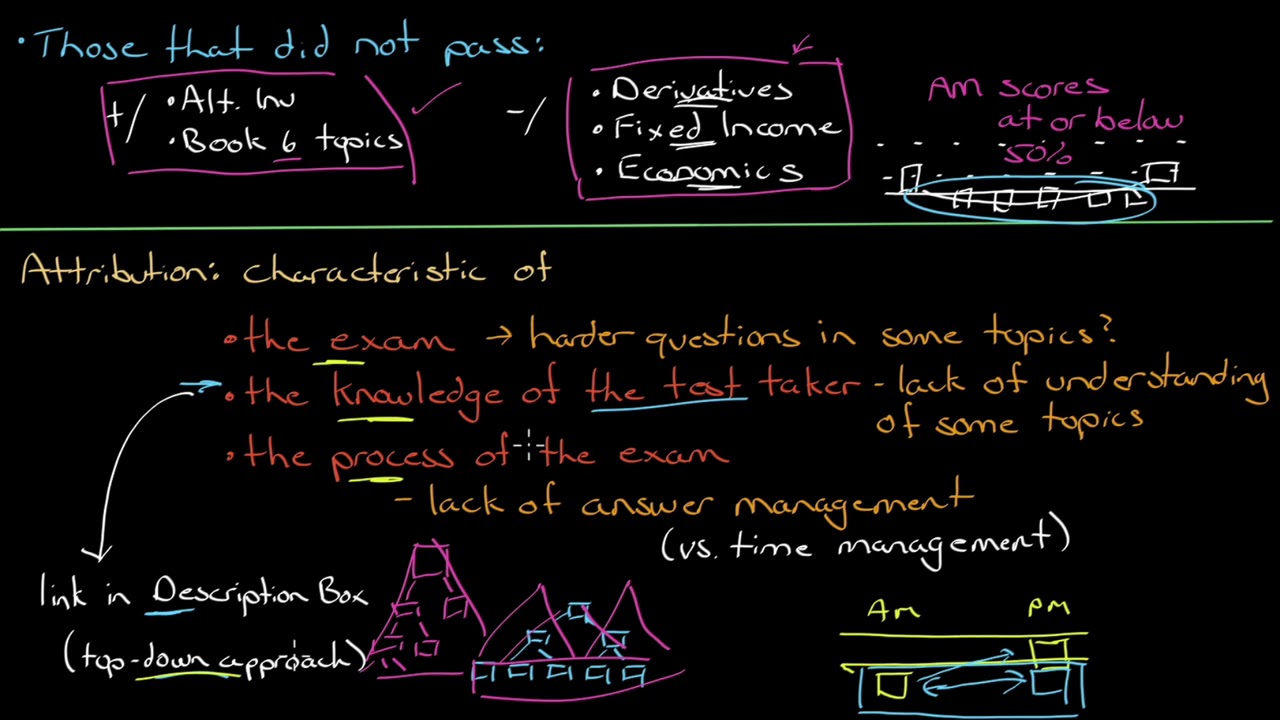 • Those that did not pass:
+/ • Alt. Inv
• Book 6 topics
-/ • Derivatives
• Fixed Income
• Economics
AM scores
at or below
50%
Attribution: characteristic of
• the exam → harder questions in some topics?
• the knowledge of the test taker - lack of understanding
of some topics
• the process of the exam
- lack of answer management
(vs. time management)
link in Description Box
(top-down approach)
AM PM